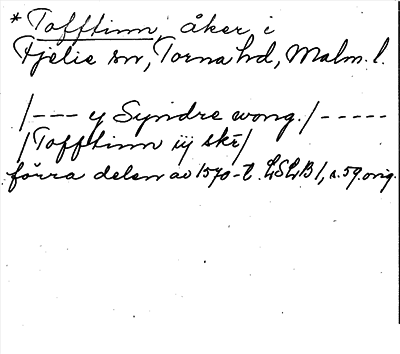 *Tofftinn, åker i
Fjelie sn, Torna hd, Malm. l.
/--- y Syndre wong. /-----
/Tofftinn iij skē/
förra delen av 1570-t. LSLB 1, s. 59. orig.